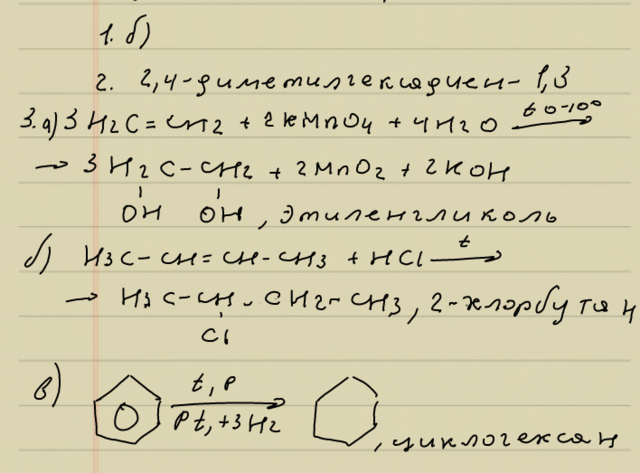 1. б)
2. 2,4-диметилгексадиен-1,3
3.а) 3 H2C=CH2 + 2KMnO4 + 4H2O t 0-10°
→ 3 H2C-CH2 + 2MnO2 + 2KOH
OH OH, этиленгликоль
б) H3C-CH=CH-CH3 + HCl t →
→ H3C-CH-CH2-CH3, 2-хлорбутан
Cl
в) t, P
Pt, +3H2 , циклогексан